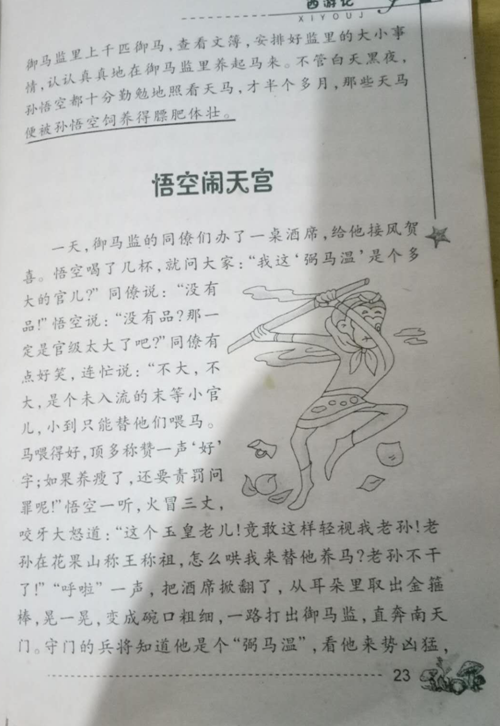 西游记
XIYOUJ
御马监里上千匹御马，查看文簿，安排好监里的大小事
情，认认真真地在御马监里养起马来。不管白天黑夜，
孙悟空都十分勤勉地照看天马，才半个多月，那些天马
便被孙悟空饲养得膘肥体壮。
悟空闹天宫
一天，御马监的同僚们办了一桌酒席，给他接风贺
喜。悟空喝了几杯，就问大家：“我这‘弼马温’是个多
大的官儿？”同僚说：“没有
品！”悟空说：“没有品？那一
定是官级太大了吧？”同僚有
点好笑，连忙说：“不大，不
大，是个未入流的末等小官
儿，小到只能替他们喂马。
马喂得好，顶多称赞一声‘好’
字；如果养瘦了，还要责罚问
罪呢！”悟空一听，火冒三丈，
咬牙大怒道：“这个玉皇老儿！竟敢这样轻视我老孙！老
孙在花果山称王称祖，怎么哄我来替他养马？老孙不干
了！”“呼啦”一声，把酒席掀翻了，从耳朵里取出金箍
棒，晃一晃，变成碗口粗细，一路打出御马监，直奔南天
门。守门的兵将知道他是个“弼马温”，看他来势凶猛，
23